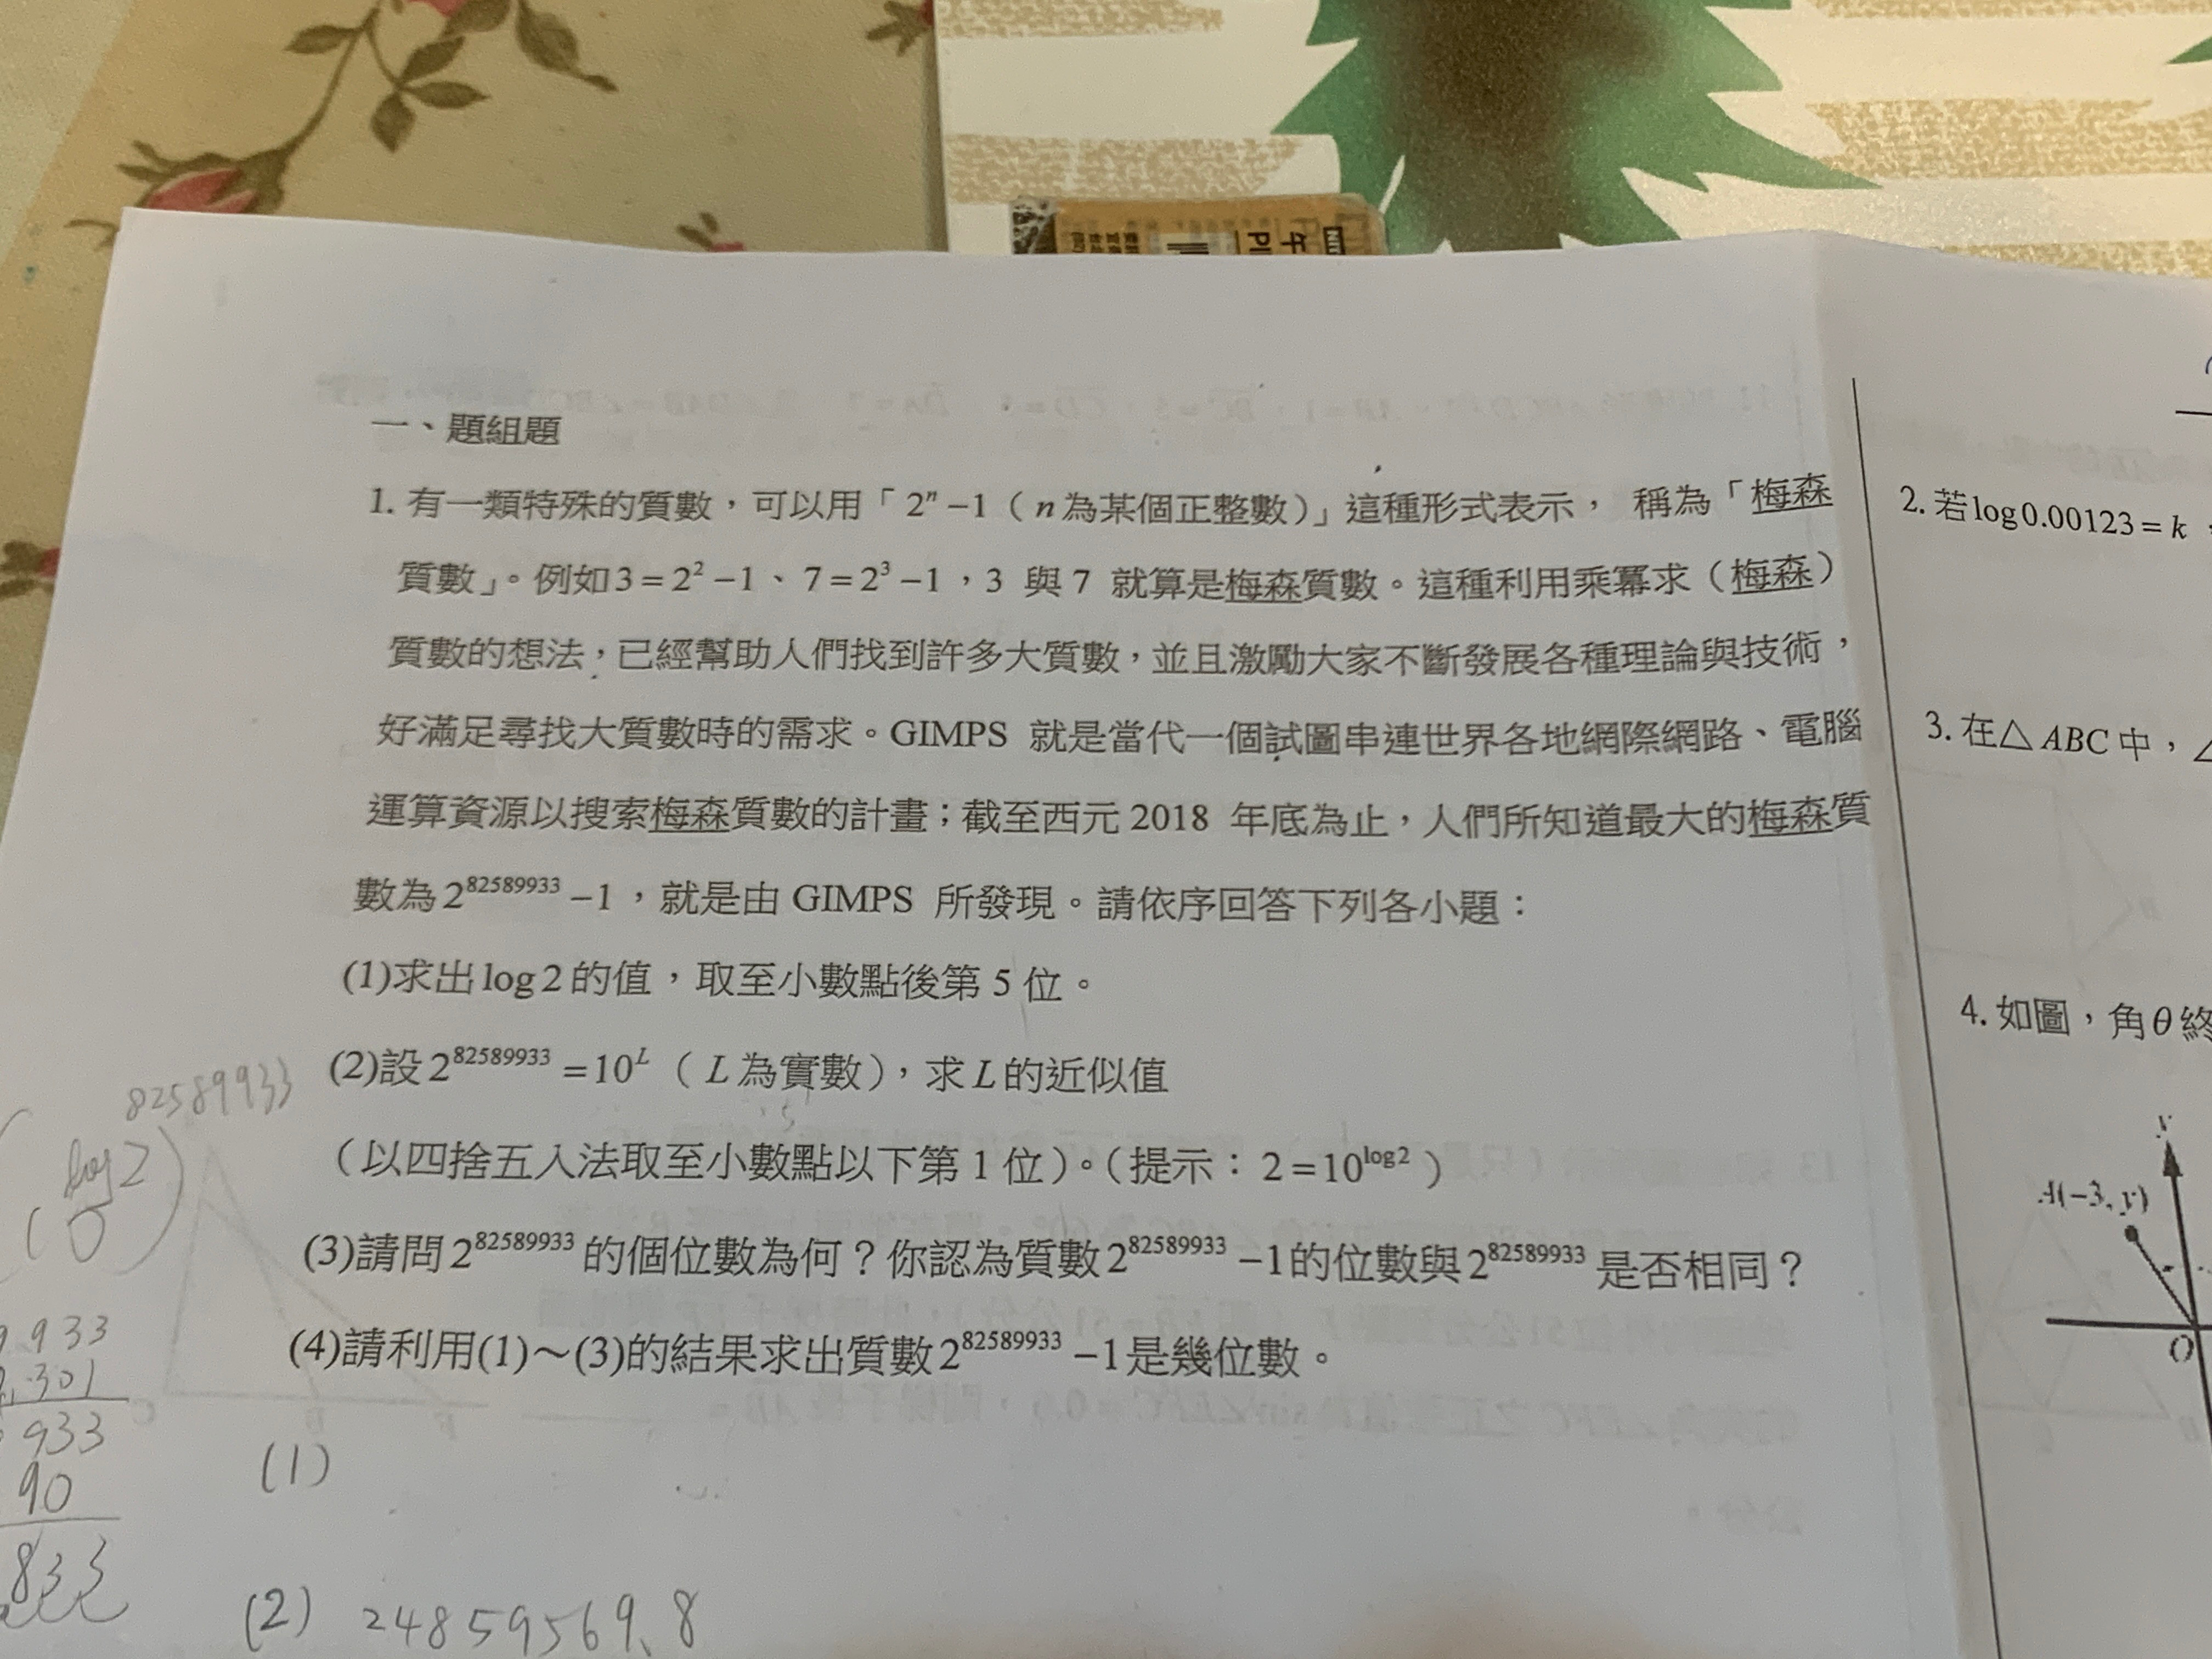 一、題組題
1. 有一類特殊的質數，可以用「2ⁿ−1（n為某個正整數）」這種形式表示， 稱為「梅森
質數」。例如3=2²−1、7=2³−1，3 與7 就算是梅森質數。這種利用乘冪求（梅森）
質數的想法，已經幫助人們找到許多大質數，並且激勵大家不斷發展各種理論與技術，
好滿足尋找大質數時的需求。GIMPS 就是當代一個試圖串連世界各地網際網路、電腦
運算資源以搜索梅森質數的計畫；截至西元 2018 年底為止，人們所知道最大的梅森質
數為2^82589933−1，就是由 GIMPS 所發現。請依序回答下列各小題：
(1)求出log2的值，取至小數點後第 5 位。
(2)設2^82589933=10^L（L為實數），求L的近似值
（以四捨五入法取至小數點以下第 1 位）。（提示：2=10^log2）
(3)請問2^82589933的個位數為何？你認為質數2^82589933−1的位數與2^82589933是否相同？
(4)請利用(1)～(3)的結果求出質數2^82589933−1是幾位數。
(1)
(2) 24859569.8
82589933
log2
933
.301
933
90
833
2. 若log0.00123=k
3. 在△ABC中，
4. 如圖，角θ終
y
A(−3, y)
O